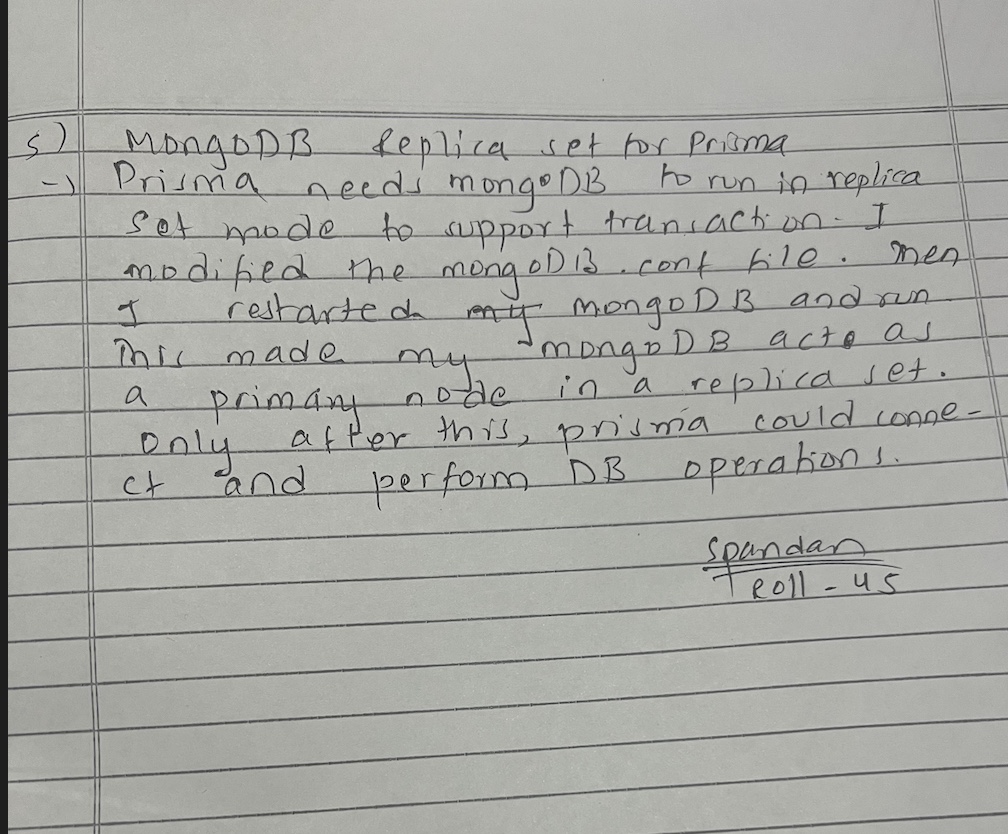 5) MongoDB Replica set for Prisma
-) Prisma needs mongoDB to run in replica
set mode to support transaction. I
modified the mongoDB.conf file. Then
I restarted my mongoDB and run
This made my mongoDB acte as
a primary node in a replica set.
only after this, prisma could conne-
ct and perform DB operations.
Spandan
Roll - 45